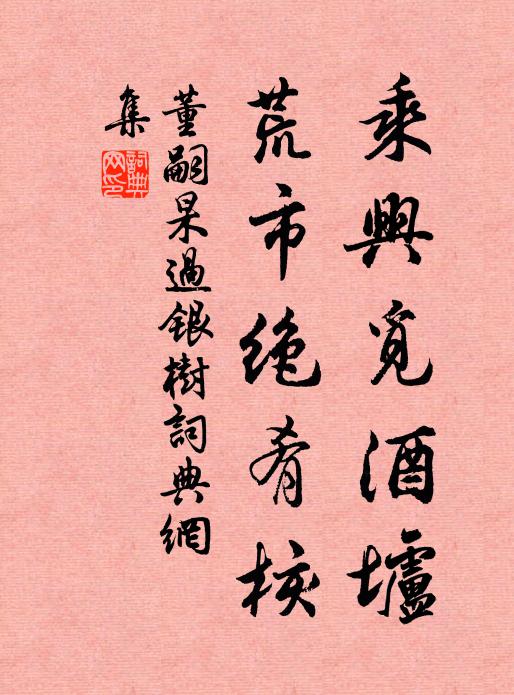 乘興覓酒壚
荒市絶肴核
董嗣杲過銀樹詞典網
集
詞典網印